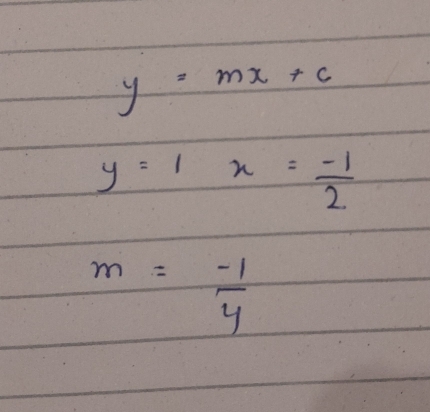 y = mx + c
y = 1 x = -1/2
m = -1/4